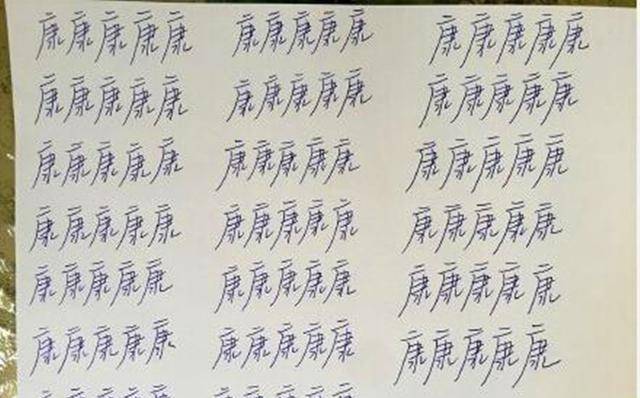 康康康康康 康康康康康 康康康康康
康康康康康 康康康康康 康康康康康
康康康康康 康康康康康 康康康康康
康康康康康 康康康康康 康康康康康
康康康康康 康康康康康 康康康康康
康康康康康 康康康康康 康康康康康